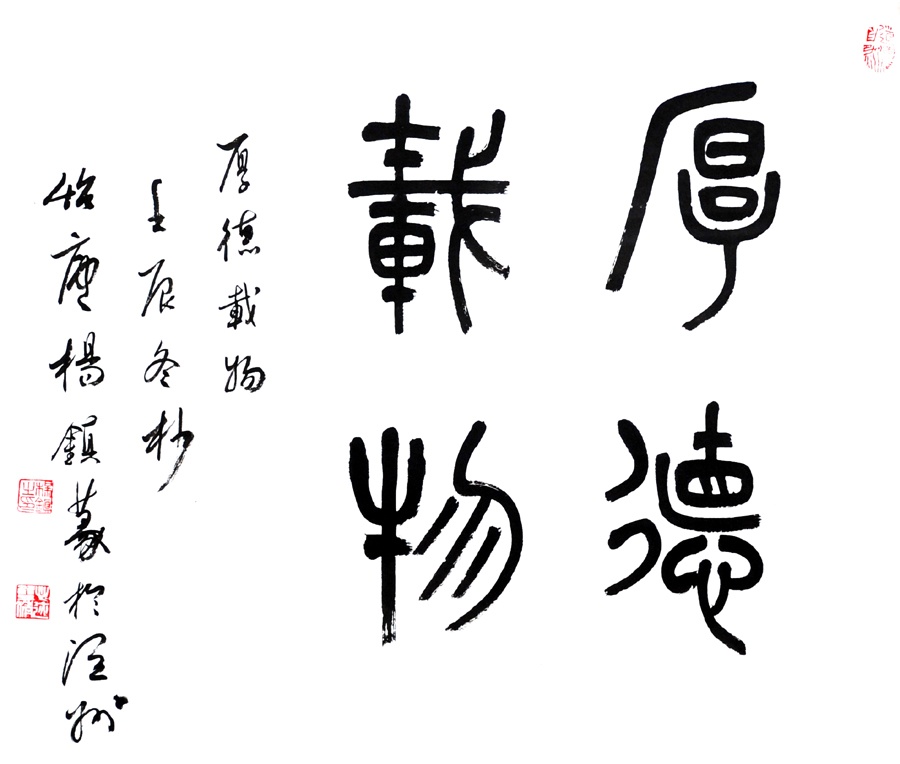 厚德
載物
厚德載物
壬辰冬杪
怡廬楊鎮篆於涇州